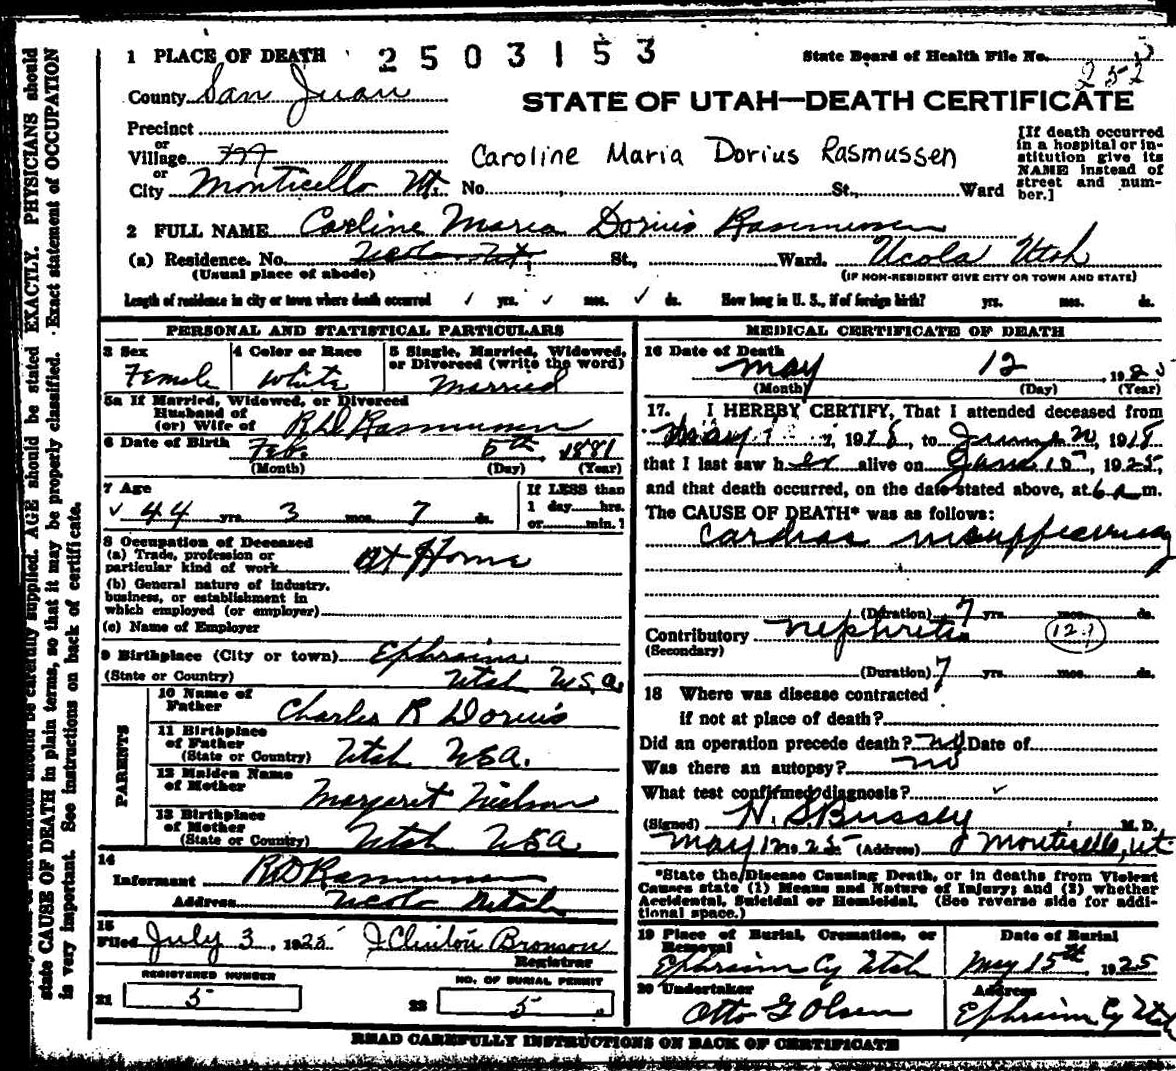 1 PLACE OF DEATH 2503153 State Board of Health File No. 5
252
County San Juan
STATE OF UTAH—DEATH CERTIFICATE
Precinct
or
Village
or
City Monticello Ut. No. St., Ward
Caroline Maria Dorius Rasmussen
[If death occurred
in a hospital or in-
stitution give its
NAME instead of
street and num-
ber.]
2 FULL NAME Carline Maria Dorius Rasmussen
(a) Residence. No. Ucola Ut. St., Ward. Ucola Utah
(Usual place of abode) (IF NON-RESIDENT GIVE CITY OR TOWN AND STATE)
Length of residence in city or town where death occurred ✓ yrs. ✓ mos. ✓ ds. How long in U. S., if of foreign birth? yrs. mos. ds.
PERSONAL AND STATISTICAL PARTICULARS
3 Sex
Female
4 Color or Race
White
5 Single, Married, Widowed,
or Divorced (write the word)
Married
5a If Married, Widowed, or Divorced
Husband of
(or) Wife of R D Rasmussen
6 Date of Birth Feb. 5th, 1881
(Month) (Day) (Year)
7 Age
✓ 44 yrs. 3 mos. 7 ds.
If LESS than
1 day hrs.
or min.?
8 Occupation of Deceased
(a) Trade, profession or
particular kind of work At Home
(b) General nature of industry,
business, or establishment in
which employed (or employer)
(c) Name of Employer
9 Birthplace (City or town) Ephraim
(State or Country) Utah U.S.A.
PARENTS
10 Name of
Father Charles R Dorius
11 Birthplace
of Father
(State or Country) Utah USA.
12 Maiden Name
of Mother Margaret Nielson
13 Birthplace
of Mother
(State or Country) Utah USA
14
Informant R D Rasmussen
Address Ucolo Utah
15
Filed July 3, 1925 J Clinton Bronson
Registrar
REGISTERED NUMBER
21 5
NO. OF BURIAL PERMIT
22 5
MEDICAL CERTIFICATE OF DEATH
16 Date of Death
May 12, 1925
(Month) (Day) (Year)
17. I HEREBY CERTIFY, That I attended deceased from
May 1918, to June 20, 1918
that I last saw her alive on 15, 1925,
and that death occurred, on the date stated above, at 6 a m.
The CAUSE OF DEATH* was as follows:
Cardiac insufficiency
(Duration) 7 yrs. mos. ds.
Contributory Nephritis
(Secondary)
(Duration) 7 yrs. mos. ds.
18 Where was disease contracted
if not at place of death?
Did an operation precede death? No Date of
Was there an autopsy? No
What test confirmed diagnosis? ✓
(Signed) H. S. Bussey M. D.
May 12 1925 (Address) Monticello, Ut
*State the Disease Causing Death, or in deaths from Violent
Causes state (1) Means and Nature of Injury; and (2) whether
Accidental, Suicidal or Homicidal. (See reverse side for addi-
tional space.)
19 Place of Burial, Cremation, or
Removal
Ephraim Cy Utah
Date of Burial
May 15th, 1925
20 Undertaker
Otto G Olsen
Address
Ephraim Cy Utah
READ CAREFULLY INSTRUCTIONS ON BACK OF CERTIFICATE
should be carefully supplied. AGE should be stated EXACTLY. PHYSICIANS should
state CAUSE OF DEATH in plain terms, so that it may be properly classified. Exact statement of OCCUPATION
is very important. See instructions on back of certificate.